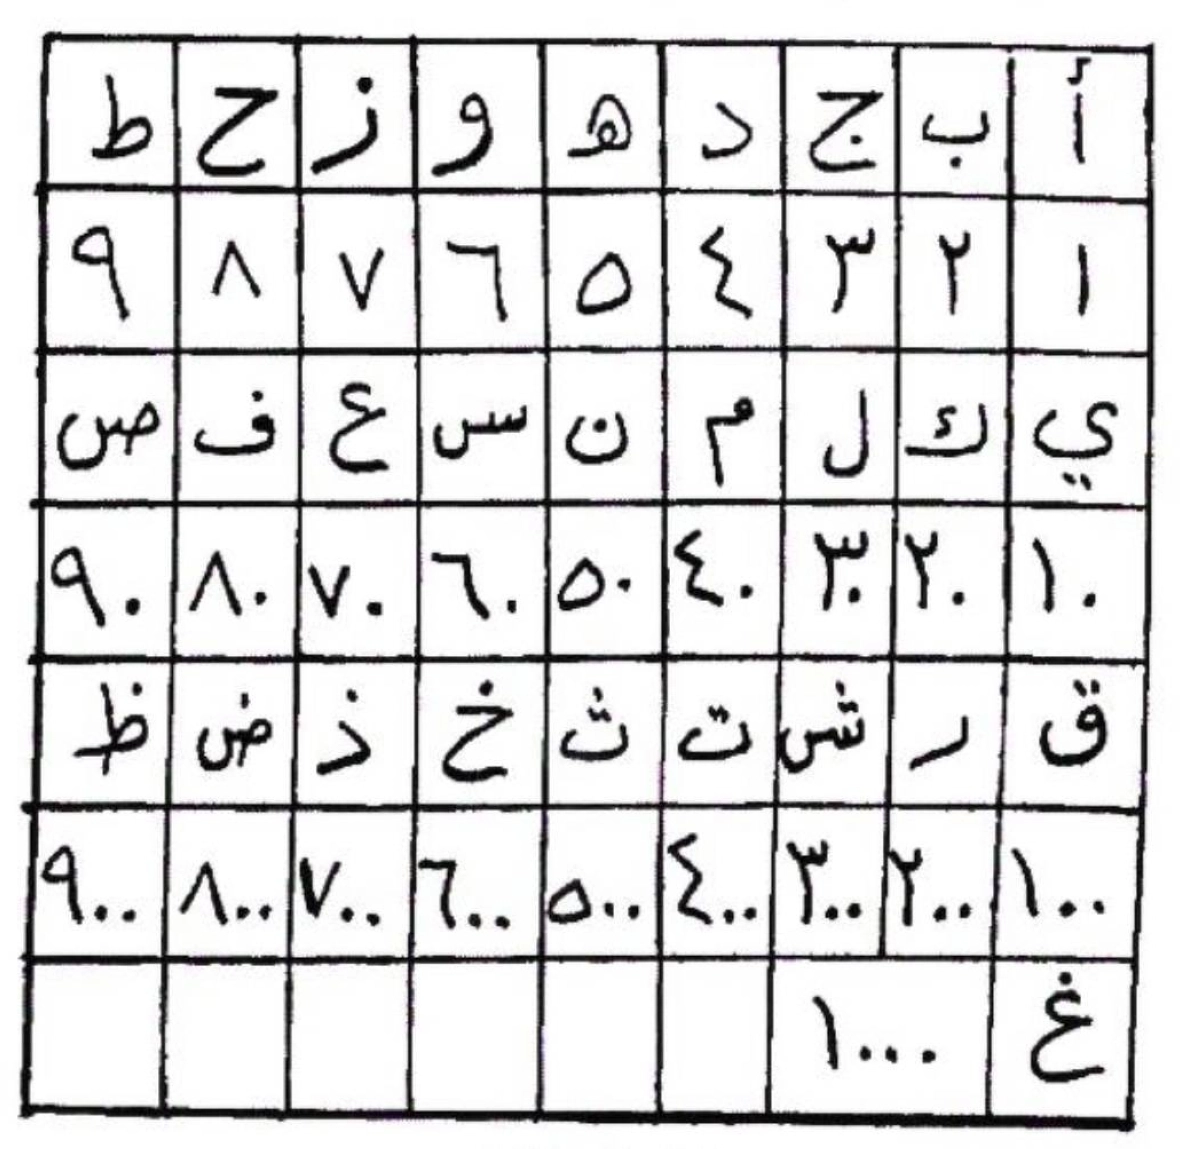 أ ب ج د ه و ز ح ط
١ ٢ ٣ ٤ ٥ ٦ ٧ ٨ ٩
ي ك ل م ن س ع ف ص
١٠ ٢٠ ٣٠ ٤٠ ٥٠ ٦٠ ٧٠ ٨٠ ٩٠
ق ر ش ت ث خ ذ ض ظ
١٠٠ ٢٠٠ ٣٠٠ ٤٠٠ ٥٠٠ ٦٠٠ ٧٠٠ ٨٠٠ ٩٠٠
غ ١٠٠٠